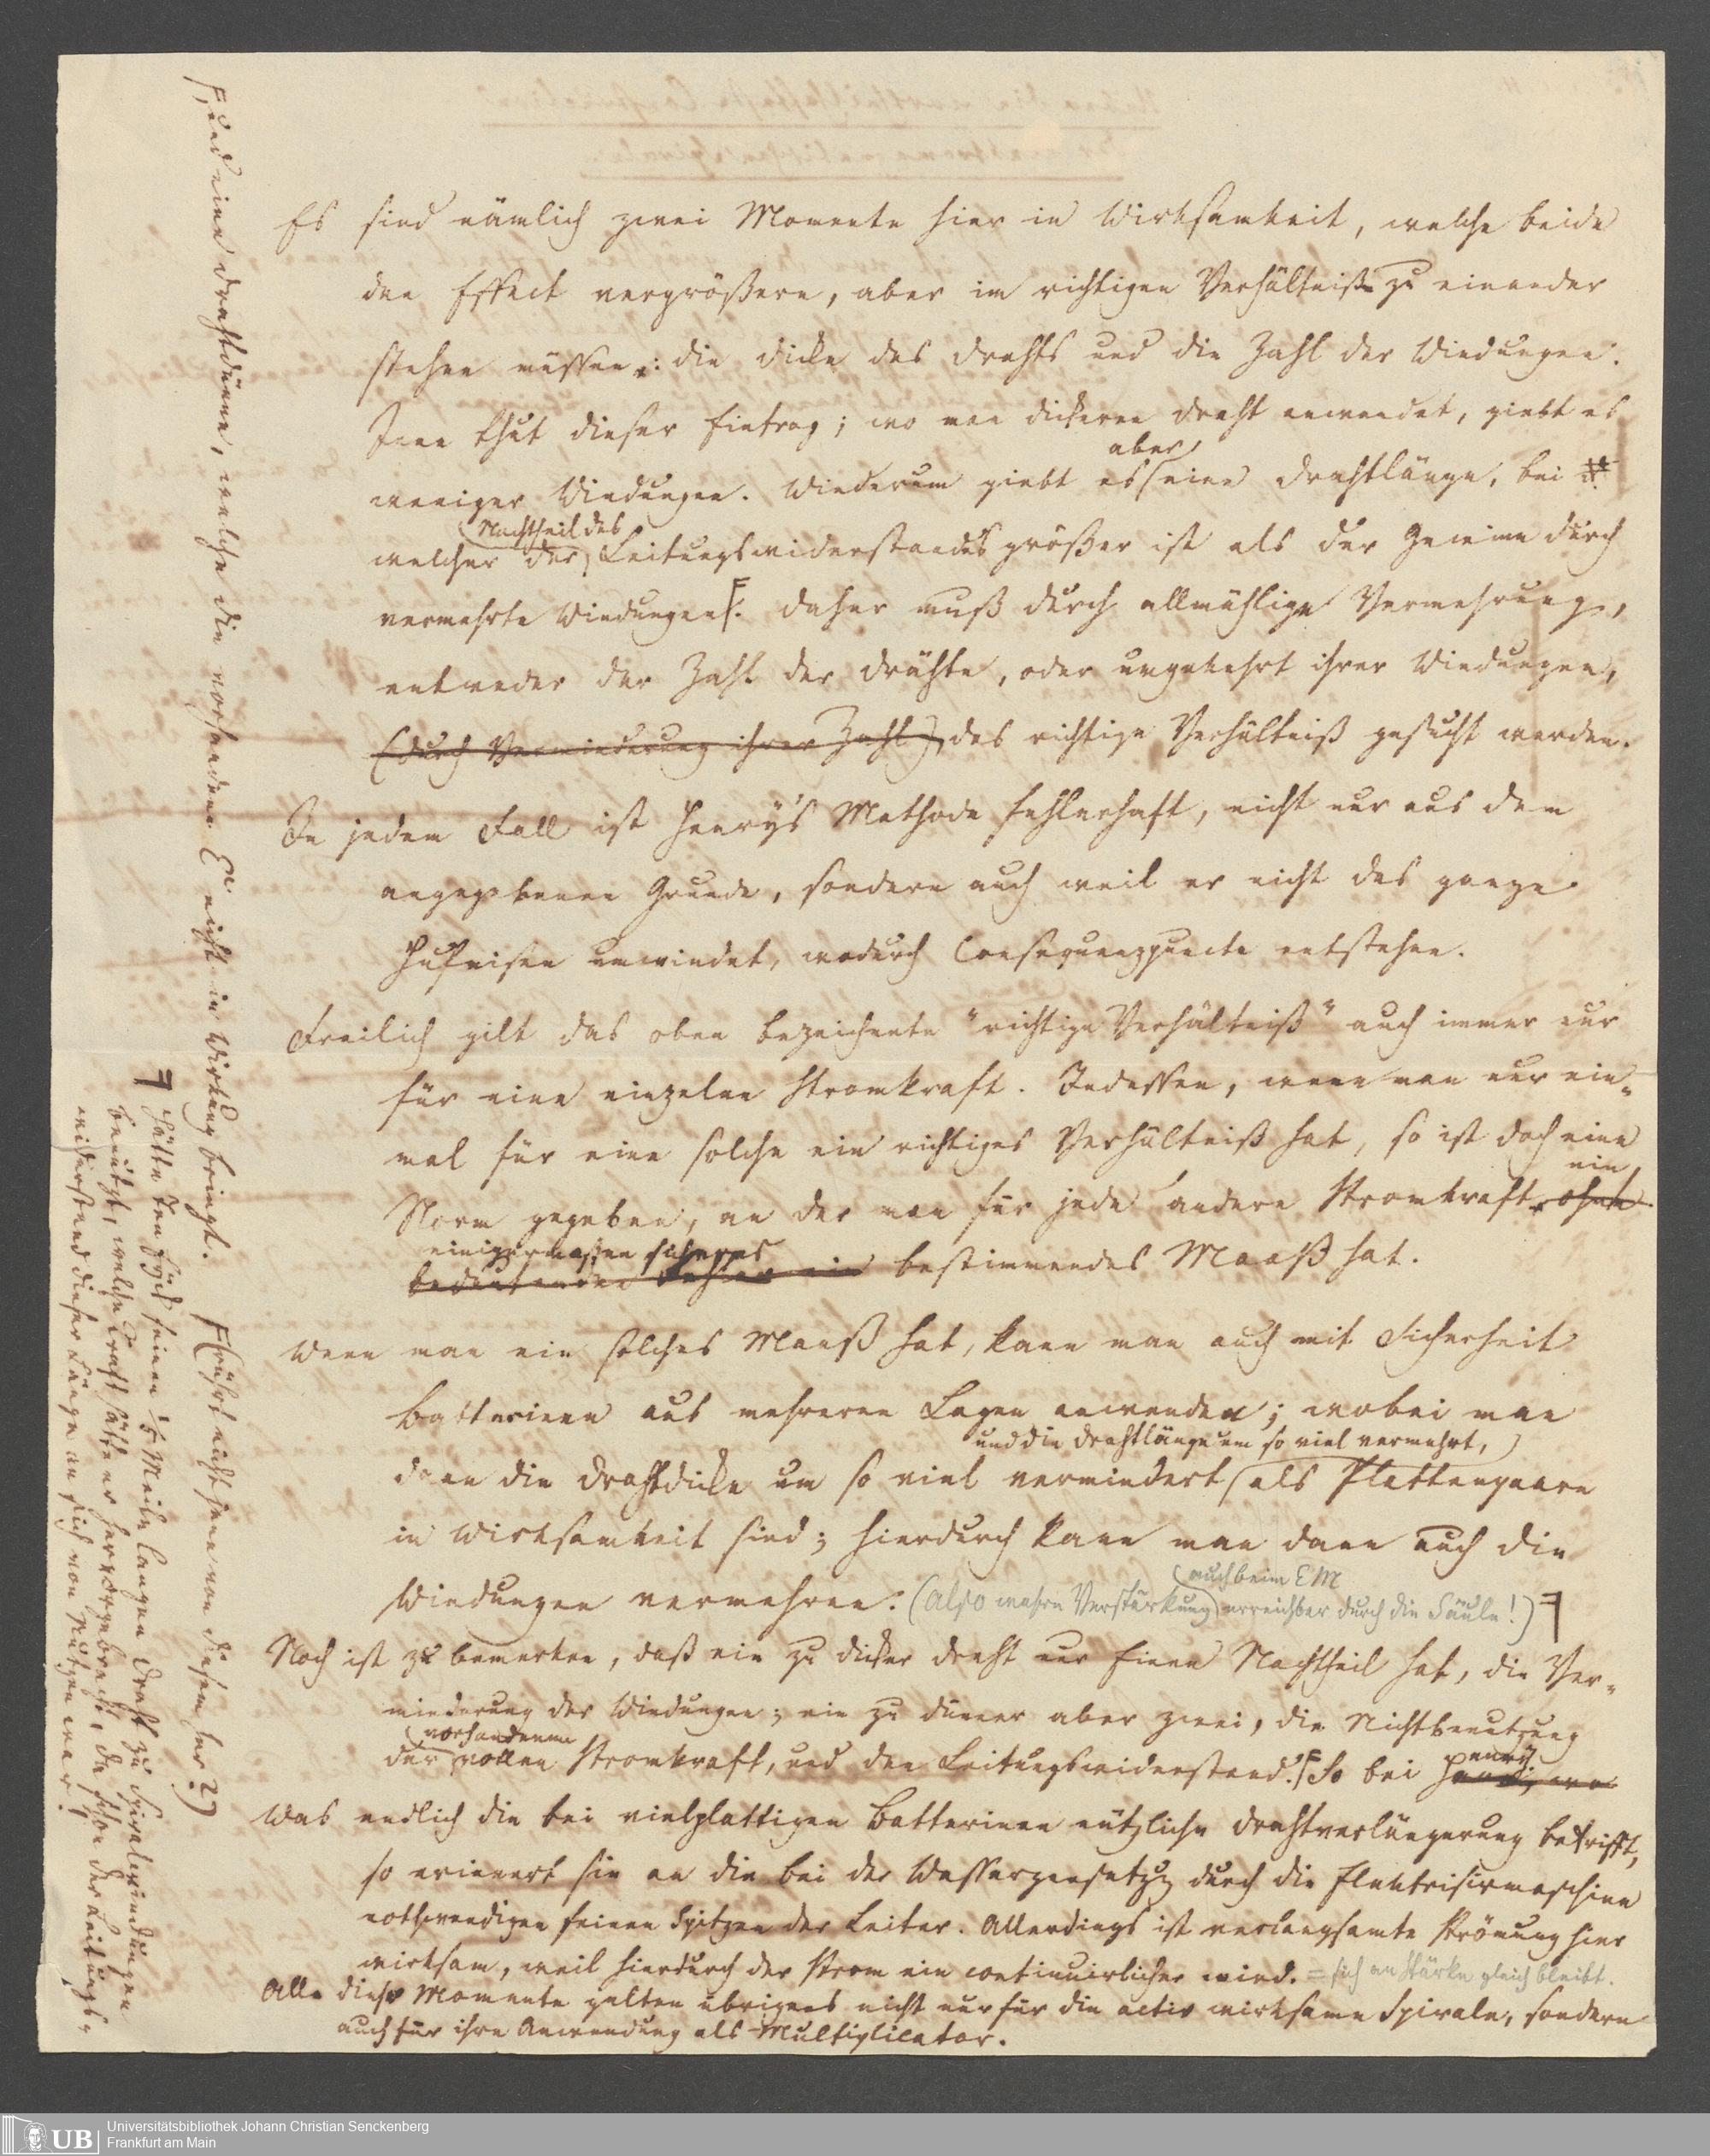 Es sind nämlich zwei Momente hier in Wirksamkeit, welche beide
den Effect vergrößern, aber im richtigen Verhältniß zu einander
stehen müssen: die Dicke des Drahts und die Zahl der Windungen.
Jene thut dieser Eintrag; wo man dickeren Draht anwendet, giebt es
aber
weniger Windungen. Wiederum giebt es eine Drahtlänge, bei
Nachtheil des
welcher der Leitungswiderstandes größer ist als der Gewinn durch
vermehrte Windungen F. Daher muß durch allmählige Vermehrung,
entweder der Zahl der Drähte, oder umgekehrt ihrer Windungen,
(durch Verminderung ihrer Zahl) das richtige Verhältniß gesucht werden.
In jedem Fall ist Henry's Methode fehlerhaft, nicht nur aus dem
angegebenen Grunde, sondern auch weil er nicht das ganze
Hufeisen umwindet, wodurch Consequenzpuncte entstehen.
Freilich gilt das oben bezeichnete "richtige Verhältniß" auch immer nur
für eine einzelne Stromkraft. Indessen, wenn man nur ein-
mal für eine solche ein richtiges Verhältniß hat, so ist doch eine
ein
Norm gegeben, an der man für jede andere Stromkraft ohne
einigermaßen sicheres
bedeutenden Fehler ein bestimmendes Maaß hat.
Wenn man ein solches Maaß hat, kann man auch mit Sicherheit
Batterieen aus mehreren Lagen anwenden; wobei man
und die Drahtlänge um so viel vermehrt,
dann die Drahtdicke um so viel vermindert als Plattenpaare
in Wirksamkeit sind; hierdurch kann man dann auch die
auch beim EM
Windungen vermehren. (Also wahre Verstärkung erreichbar durch die Säule!)
Noch ist zu bemerken, daß ein zu dicker Draht nur Einen Nachtheil hat, die Ver-
minderung der Windungen; ein zu dünner aber zwei, die Nichtbenutzung
vorhandenen
der vollen Stromkraft, und den Leitungswiderstand. F So bei Henry, wo
Was endlich die bei vielplattigen Batterieen nützliche Drahtverlängerung betrifft,
so erinnert sie an die bei der Wasserzersetzg durch die Elektrisirmaschine
nothwendigen feinen Spitzen der Leiter. Allerdings ist verlangsamte Strömung hier
wirksam, weil hierdurch der Strom ein continuirlicher wird. = sich an Stärke gleich bleibt.
Alle diese Momente gelten übrigens nicht nur für die activ wirksame Spirale, sondern
auch für ihre Anwendung als Multiplicator.
F und eine Drahtdünne, welche die vorhandene E. nicht in Wirkung bringt.
F (Rührt nicht jene von dieser her?)
hätte Ten Eyck seinen 1/5 Meile langen Draht zu Spiralwindungen
benützt, welche Kraft hätte er hervorgebracht, da schon der Leitungs-
widerstand dieser Länge an sich von Nutzen war!
Universitätsbibliothek Johann Christian Senckenberg
Frankfurt am Main
UB